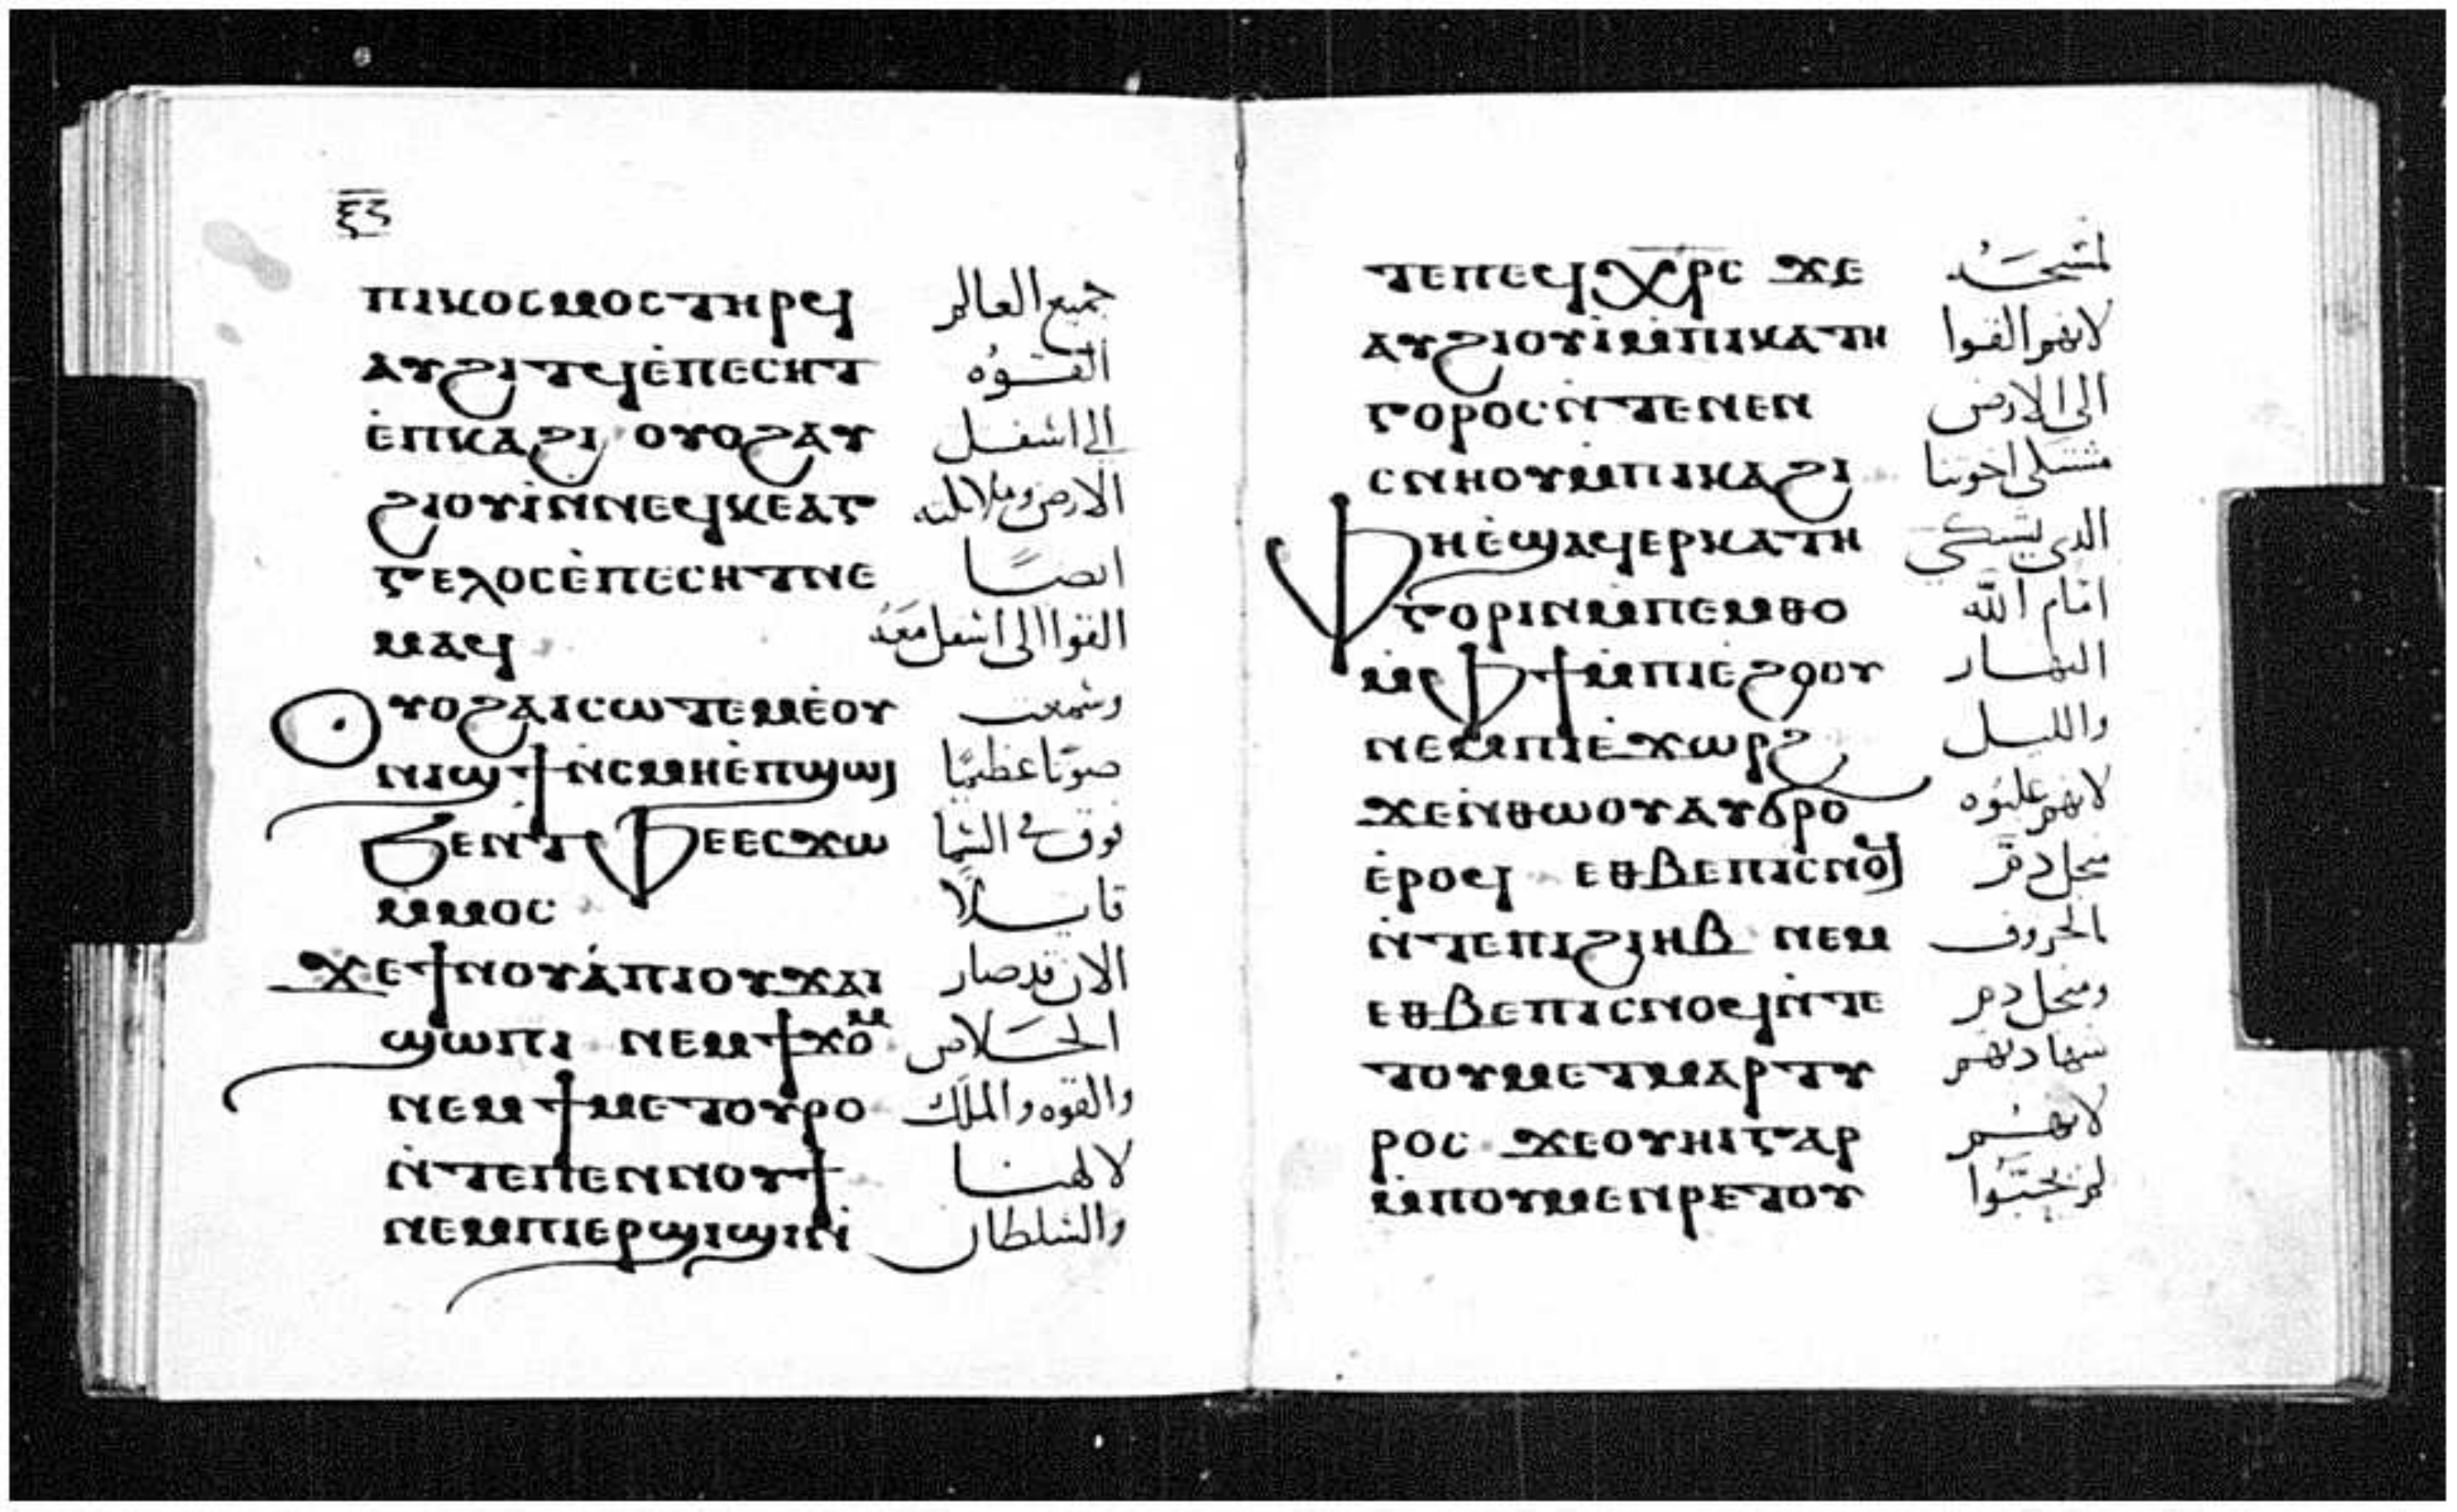 ⲝ̅ⲋ̅
ⲡⲓⲕⲟⲥⲙⲟⲥ ⲧⲏⲣϥ جميع العالم
ⲁⲩϩⲓⲧϥ ⲉ̀ⲡⲉⲥⲏⲧ القوه
ⲉ̀ⲡⲕⲁϩⲓ ⲟⲩⲟϩ ⲁⲩ الى اسفل
ϩⲓⲟⲩⲓ̀ ⲛ̀ⲛⲉϥⲕⲉⲁⲅ الارض وملايكته
ⲅⲉⲗⲟⲥ ⲉ̀ⲡⲉⲥⲏⲧ ⲛⲉ ايضًا
ⲙⲁϥ القوا الى اسفل معَهُ
ⲟⲩⲟϩ ⲁⲓⲥⲱⲧⲉⲙ ⲉ̀ⲟⲩ وسمعت
ⲛⲓϣϯ ⲛ̀ⲥⲙⲏ ⲉ̀ⲡϣⲱⲓ صوتًا عظيمًا
ϧⲉⲛ ⲧⲫⲉ ⲉⲥϫⲱ فوق في السما
ⲙ̀ⲙⲟⲥ قايـلاً
ϫⲉ ϯⲛⲟⲩ ⲁ̀ ⲡⲓⲟⲩϫⲁⲓ الان قد صار
ϣⲱⲡⲓ ⲛⲉⲙ ϯϫⲟⲙ الخـلاص
ⲛⲉⲙ ϯⲙⲉⲧⲟⲩⲣⲟ والقوه والملك
ⲛ̀ⲧⲉ ⲡⲉⲛⲛⲟⲩϯ لالهنـا
ⲛⲉⲙ ⲡⲓⲉⲣϣⲓϣⲓⲛⲓ والسلطان
ⲧⲉ ⲡⲉϥⲭ̅ⲣ̅ⲥ ϫⲉ لمسيحـه
ⲁⲩϩⲓⲟⲩⲓ̀ ⲙ̀ⲡⲓⲕⲁⲧⲏ لانهم القوا
ⲅⲟⲣⲟⲥ ⲛ̀ⲧⲉ ⲛⲉⲛ الى الارض
ⲥⲛⲏⲟⲩ ⲙ̀ⲡⲓⲕⲁϩⲓ مشتكى اخوتنا
ⲫⲏ ⲉ̀ϣⲁϥⲉⲣⲕⲁⲧⲏ الذى يشتكى
ⲅⲟⲣⲓⲛ ⲙ̀ⲡⲉⲙⲑⲟ امام الله
ⲙ̀ⲫϯ ⲙ̀ⲡⲓⲉ̀ϩⲟⲟⲩ النهـار
ⲛⲉⲙ ⲡⲓⲉ̀ϫⲱⲣϩ والليـل
ϫⲉ ⲛ̀ⲑⲱⲟⲩ ⲁⲩϭⲣⲟ لانهم غلبوه
ⲉ̀ⲣⲟϥ ⲉⲑⲃⲉ ⲡⲓⲥⲛⲟϥ من اجل دم
ⲛ̀ⲧⲉ ⲡⲓϩⲓⲏⲃ ⲛⲉⲙ الخروف
ⲉⲑⲃⲉ ⲡⲓⲥⲛⲟϥ ⲛ̀ⲧⲉ ومن اجل دم
ⲧⲟⲩⲙⲉⲧⲙⲁⲣⲧⲩ شهادتهم
ⲣⲟⲥ ϫⲉ ⲟⲩⲏⲓ ⲅⲁⲣ لانهـم
ⲙ̀ⲡⲟⲩⲙⲉⲛⲣⲉ ⲧⲟⲩ لم يحبّوا